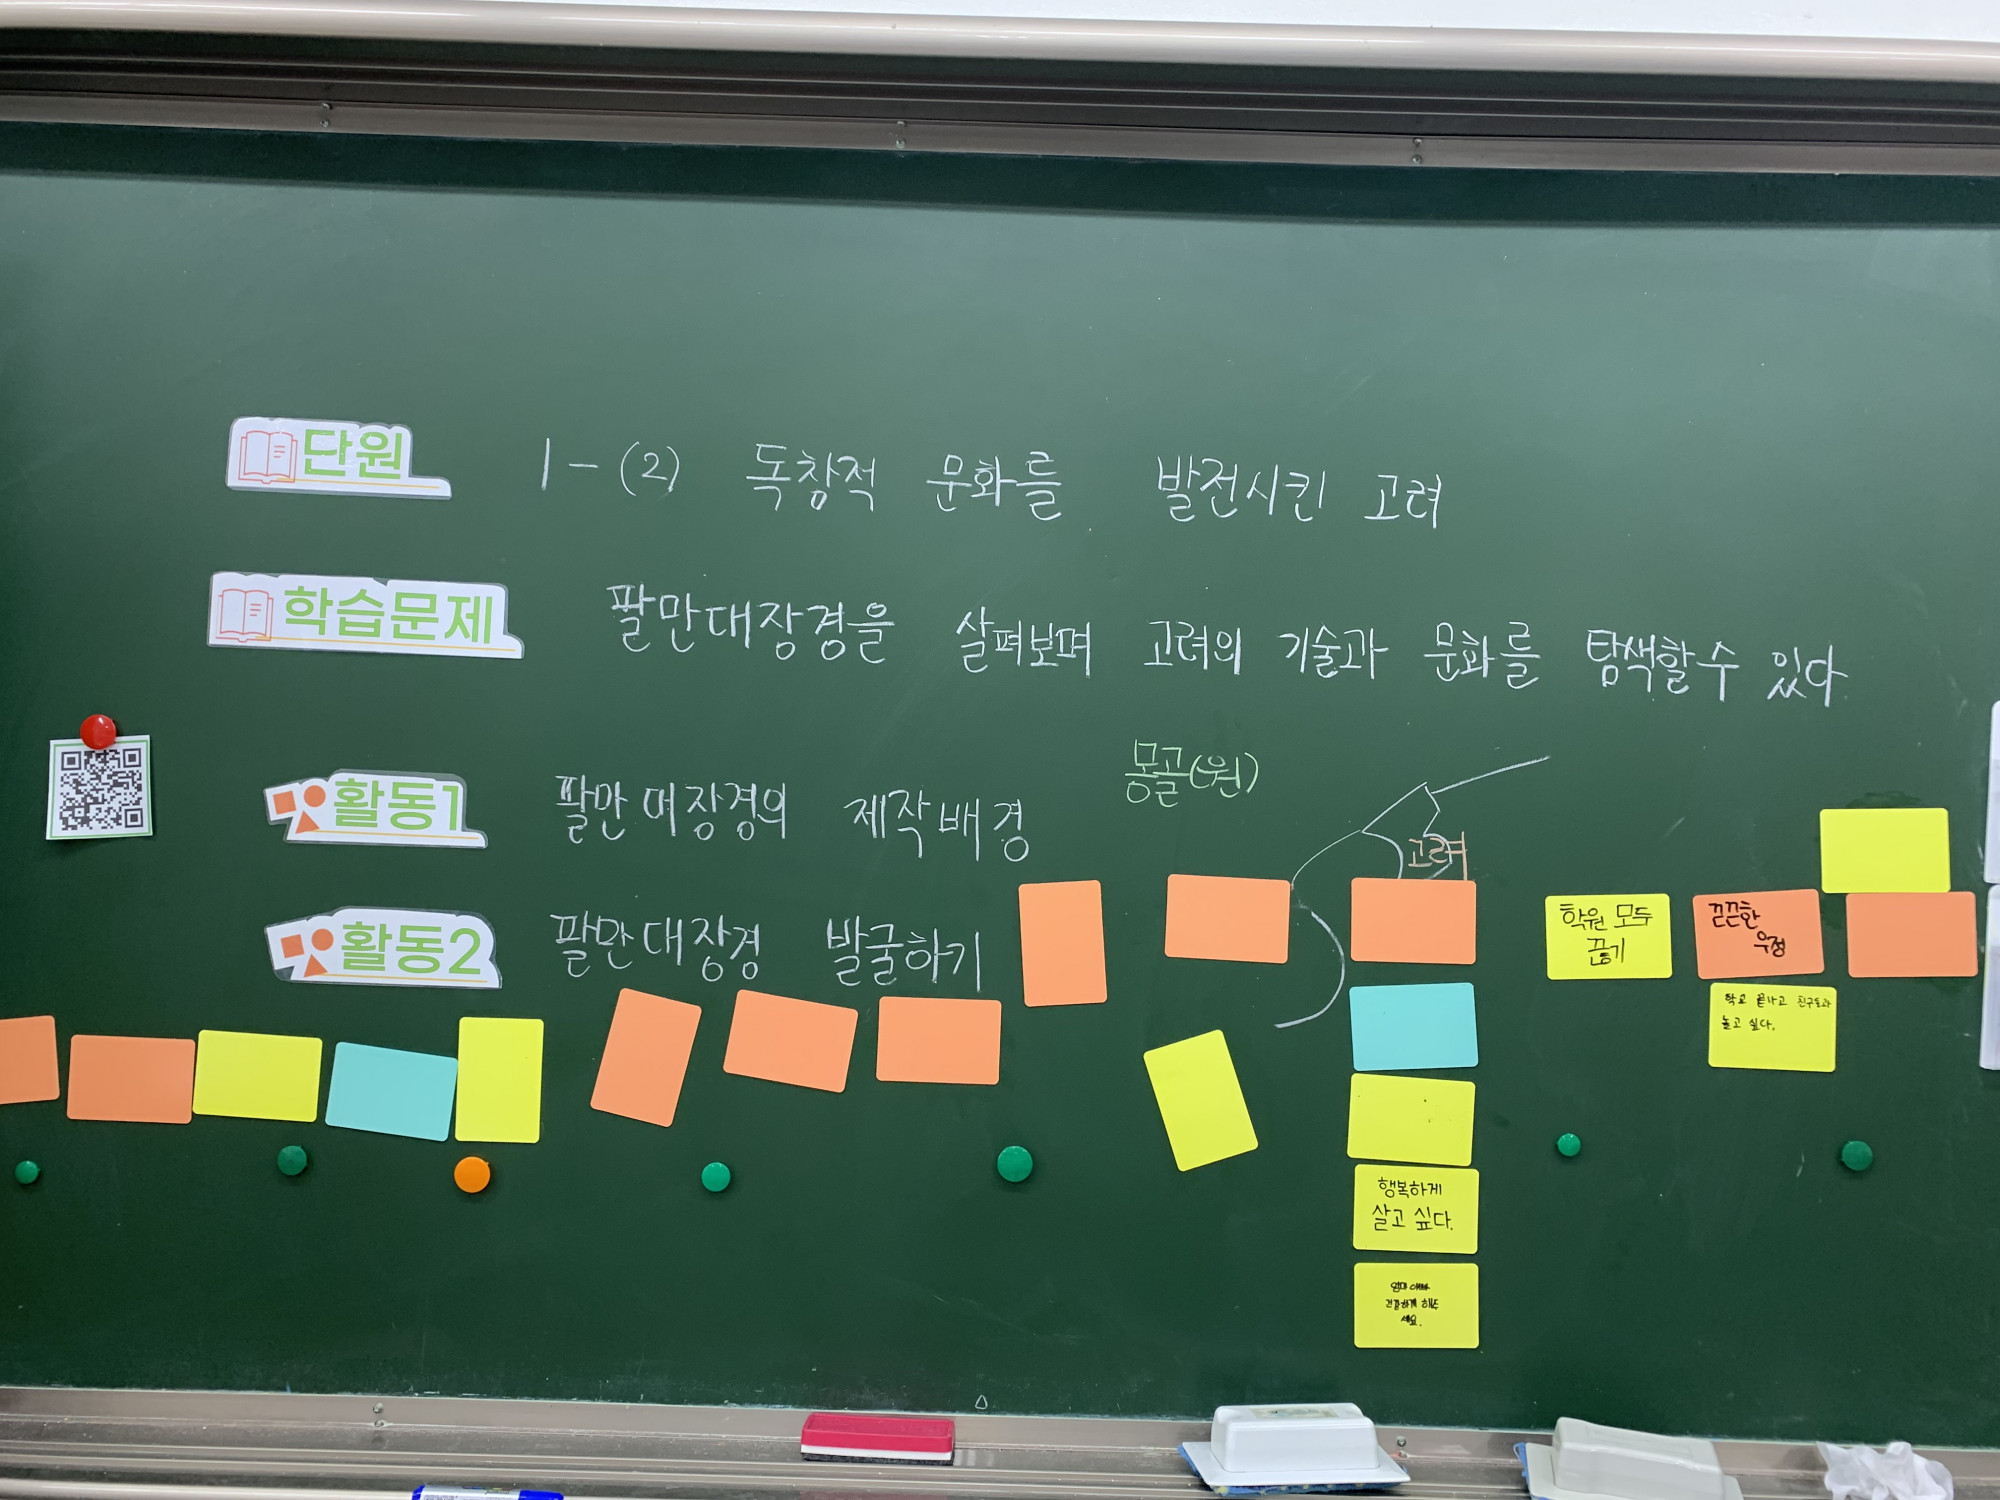 단원 1-(2) 독창적 문화를 발전시킨 고려
학습문제 팔만대장경을 살펴보며 고려의 기술과 문화를 탐색할 수 있다
활동1 팔만대장경의 제작배경
몽골(원)
고려
활동2 팔만대장경 발굴하기
학원 모두
끊기
끈끈한
우정
학교 끝나고 친구들과
놀고 싶다.
행복하게
살고 싶다.
엄마 아빠
건강하게 해주
세요.